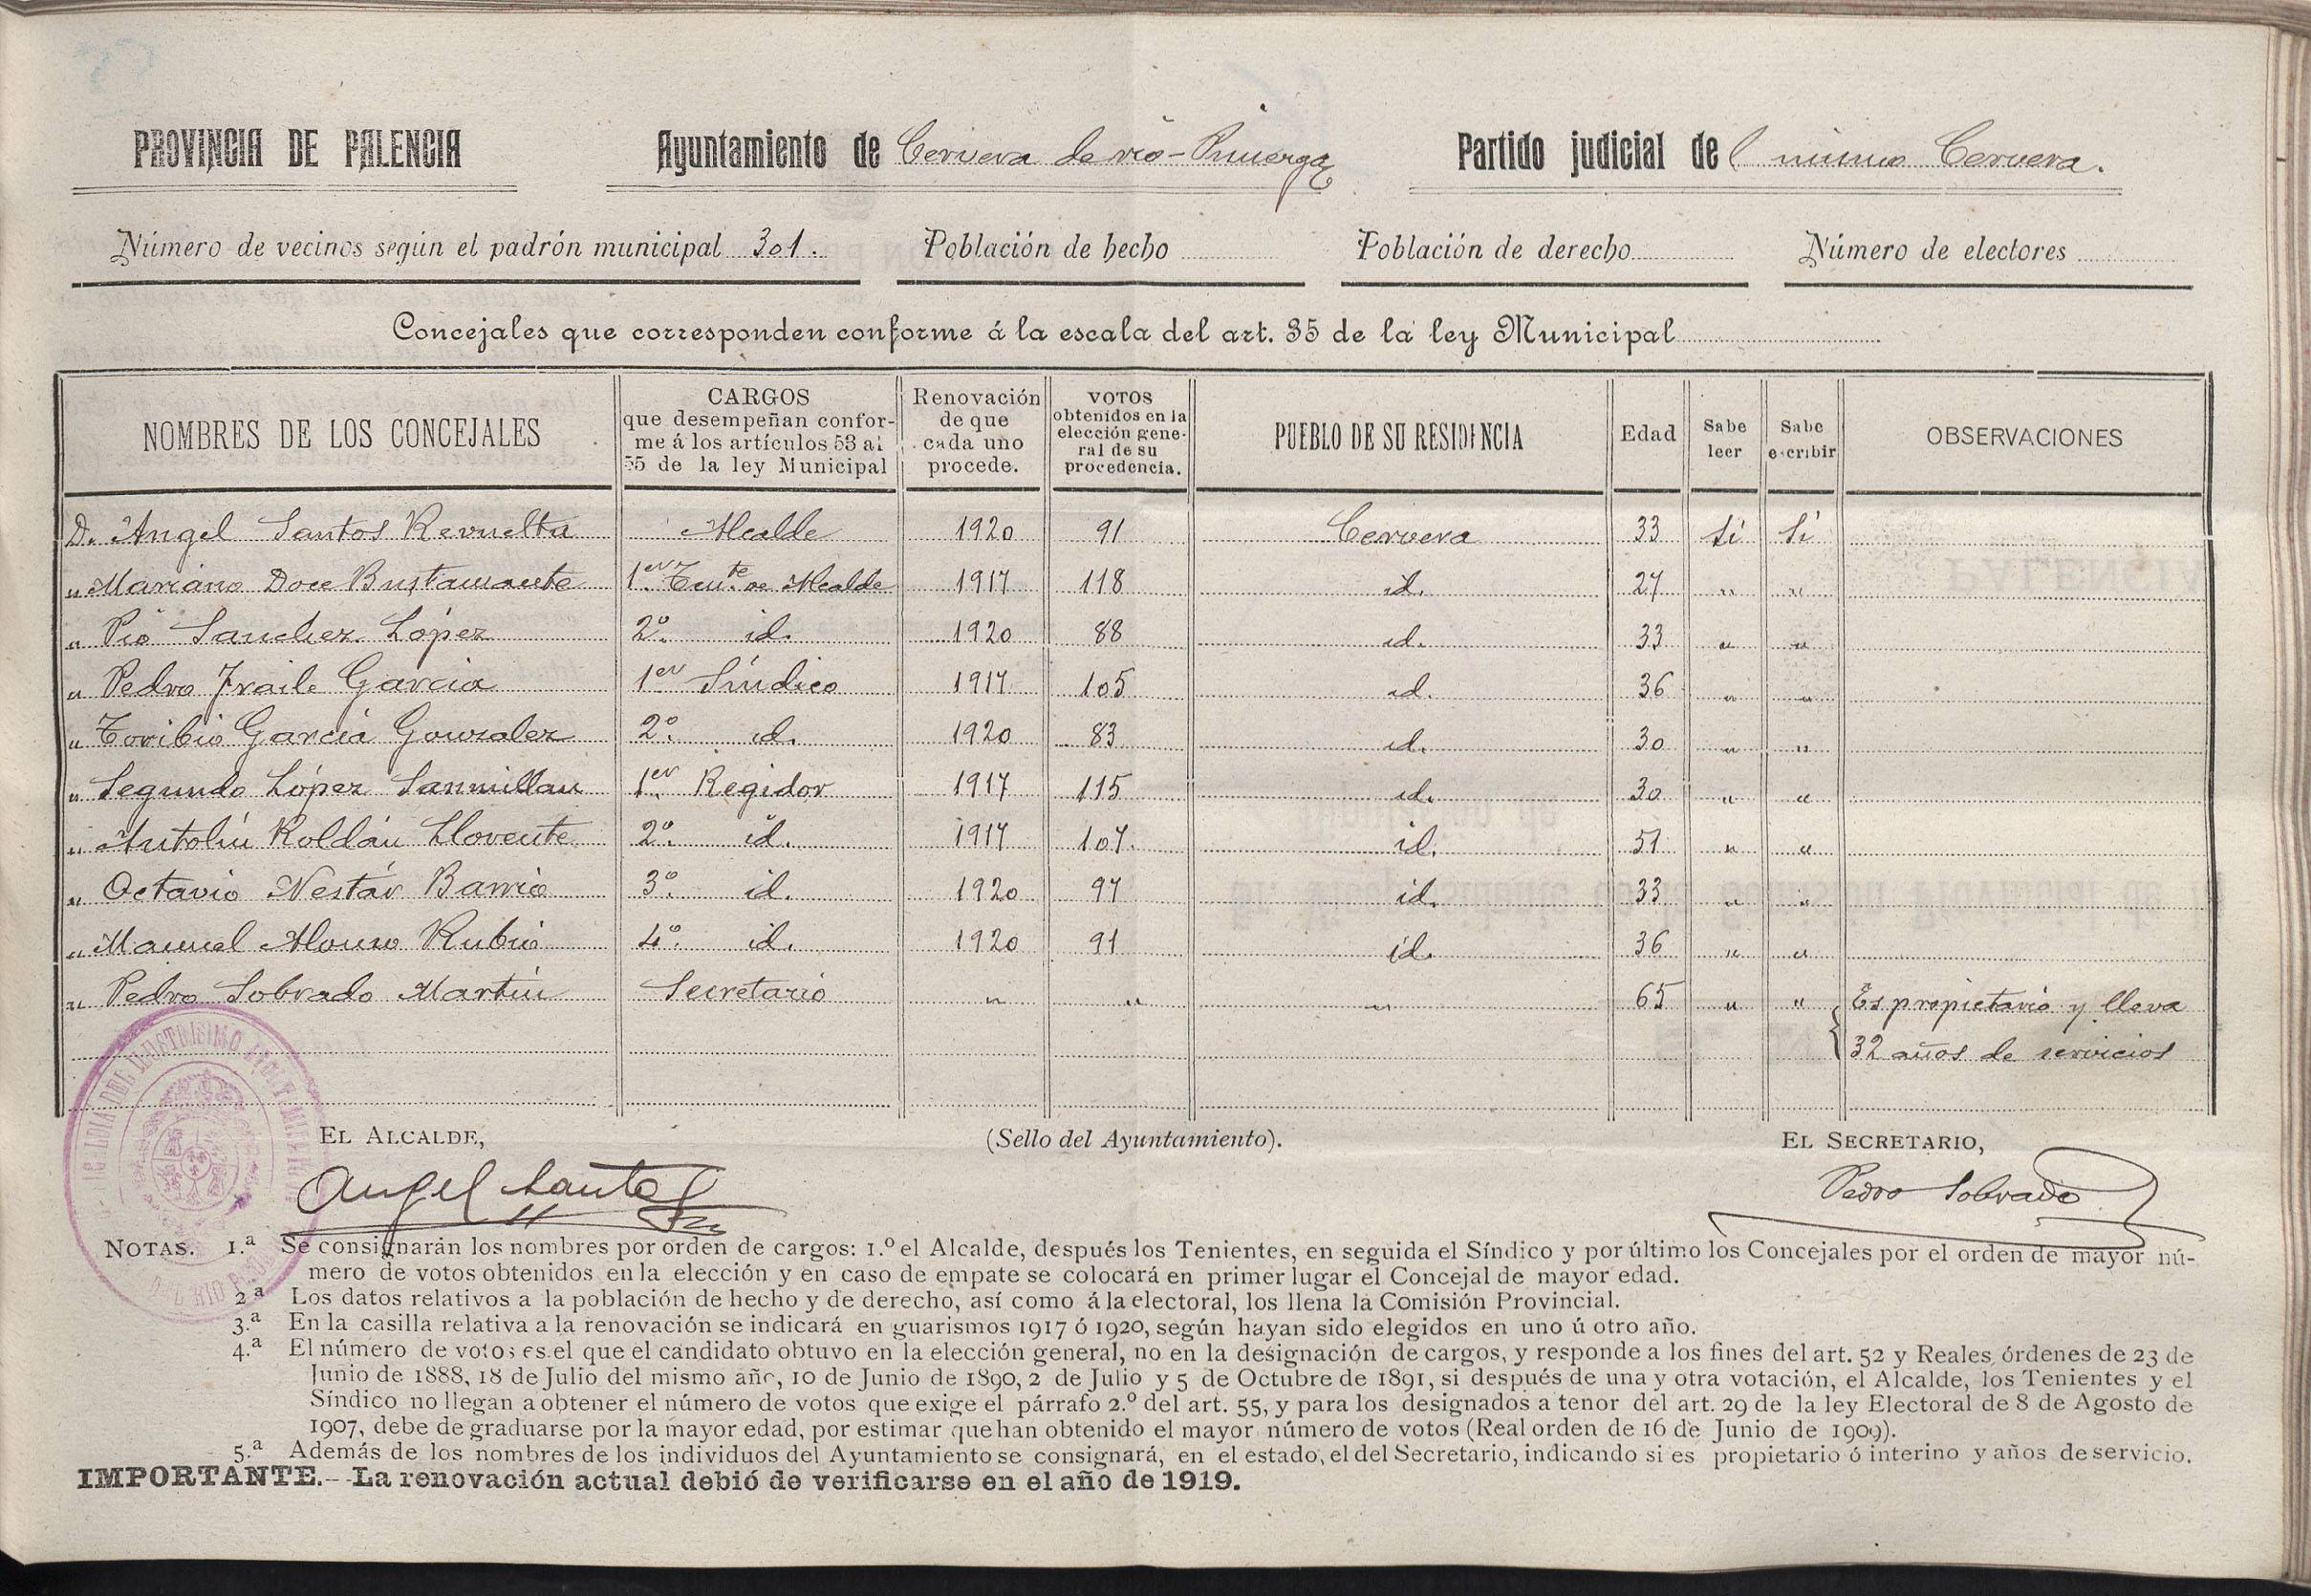 PROVINCIA DE PALENCIA Ayuntamiento de Cervera de rio-Pisuerga Partido judicial de l mismo Cervera.
Número de vecinos según el padrón municipal 301. Población de hecho Población de derecho Número de electores
Concejales que corresponden conforme á la escala del art. 35 de la ley Municipal
NOMBRES DE LOS CONCEJALES
CARGOS
que desempeñan confor-
me á los artículos 53 al
55 de la ley Municipal
Renovación
de que
cada uno
procede.
VOTOS
obtenidos en la
elección gene-
ral de su
procedencia.
PUEBLO DE SU RESIDENCIA
Edad
Sabe
leer
Sabe
escribir
OBSERVACIONES
D. Angel Santos Revuelta Alcalde 1920 91 Cervera 33 Sí Sí
" Mariano Doce Bustamante 1er Tente de Alcalde 1917 118 id. 27 " "
" Pio Sanchez López 2º id. 1920 88 id. 33 " "
" Pedro Fraile Garcia 1er Síndico 1917 105 id. 36 " "
" Toribio García Gonzalez 2º id. 1920 83 id. 30 " "
" Segundo López Sanmillan 1er Regidor 1917 115 id. 30 " "
" Antolín Roldán Llorente 2º id. 1917 107. id. 51 " "
" Octavio Nestár Barrio 3º id. 1920 97 id. 33 " "
" Manuel Alonso Rubio 4º id. 1920 91 id. 36 " "
" Pedro Sobrado Martín Secretario " " " 65 " " Es propietario y lleva
32 años de servicios
EL ALCALDE, (Sello del Ayuntamiento). EL SECRETARIO,
Angel Santos Pedro Sobrado
NOTAS. 1.ª Se consignarán los nombres por orden de cargos: 1.º el Alcalde, después los Tenientes, en seguida el Síndico y por último los Concejales por el orden de mayor nú-
mero de votos obtenidos en la elección y en caso de empate se colocará en primer lugar el Concejal de mayor edad.
2.ª Los datos relativos a la población de hecho y de derecho, así como á la electoral, los llena la Comisión Provincial.
3.ª En la casilla relativa a la renovación se indicará en guarismos 1917 ó 1920, según hayan sido elegidos en uno ú otro año.
4.ª El número de votos es el que el candidato obtuvo en la elección general, no en la designación de cargos, y responde a los fines del art. 52 y Reales órdenes de 23 de
Junio de 1888, 18 de Julio del mismo año, 10 de Junio de 1890, 2 de Julio y 5 de Octubre de 1891, si después de una y otra votación, el Alcalde, los Tenientes y el
Síndico no llegan a obtener el número de votos que exige el párrafo 2.º del art. 55, y para los designados a tenor del art. 29 de la ley Electoral de 8 de Agosto de
1907, debe de graduarse por la mayor edad, por estimar que han obtenido el mayor número de votos (Real orden de 16 de Junio de 1909).
5.ª Además de los nombres de los individuos del Ayuntamiento se consignará, en el estado, el del Secretario, indicando si es propietario ó interino y años de servicio.
IMPORTANTE.--La renovación actual debió de verificarse en el año de 1919.